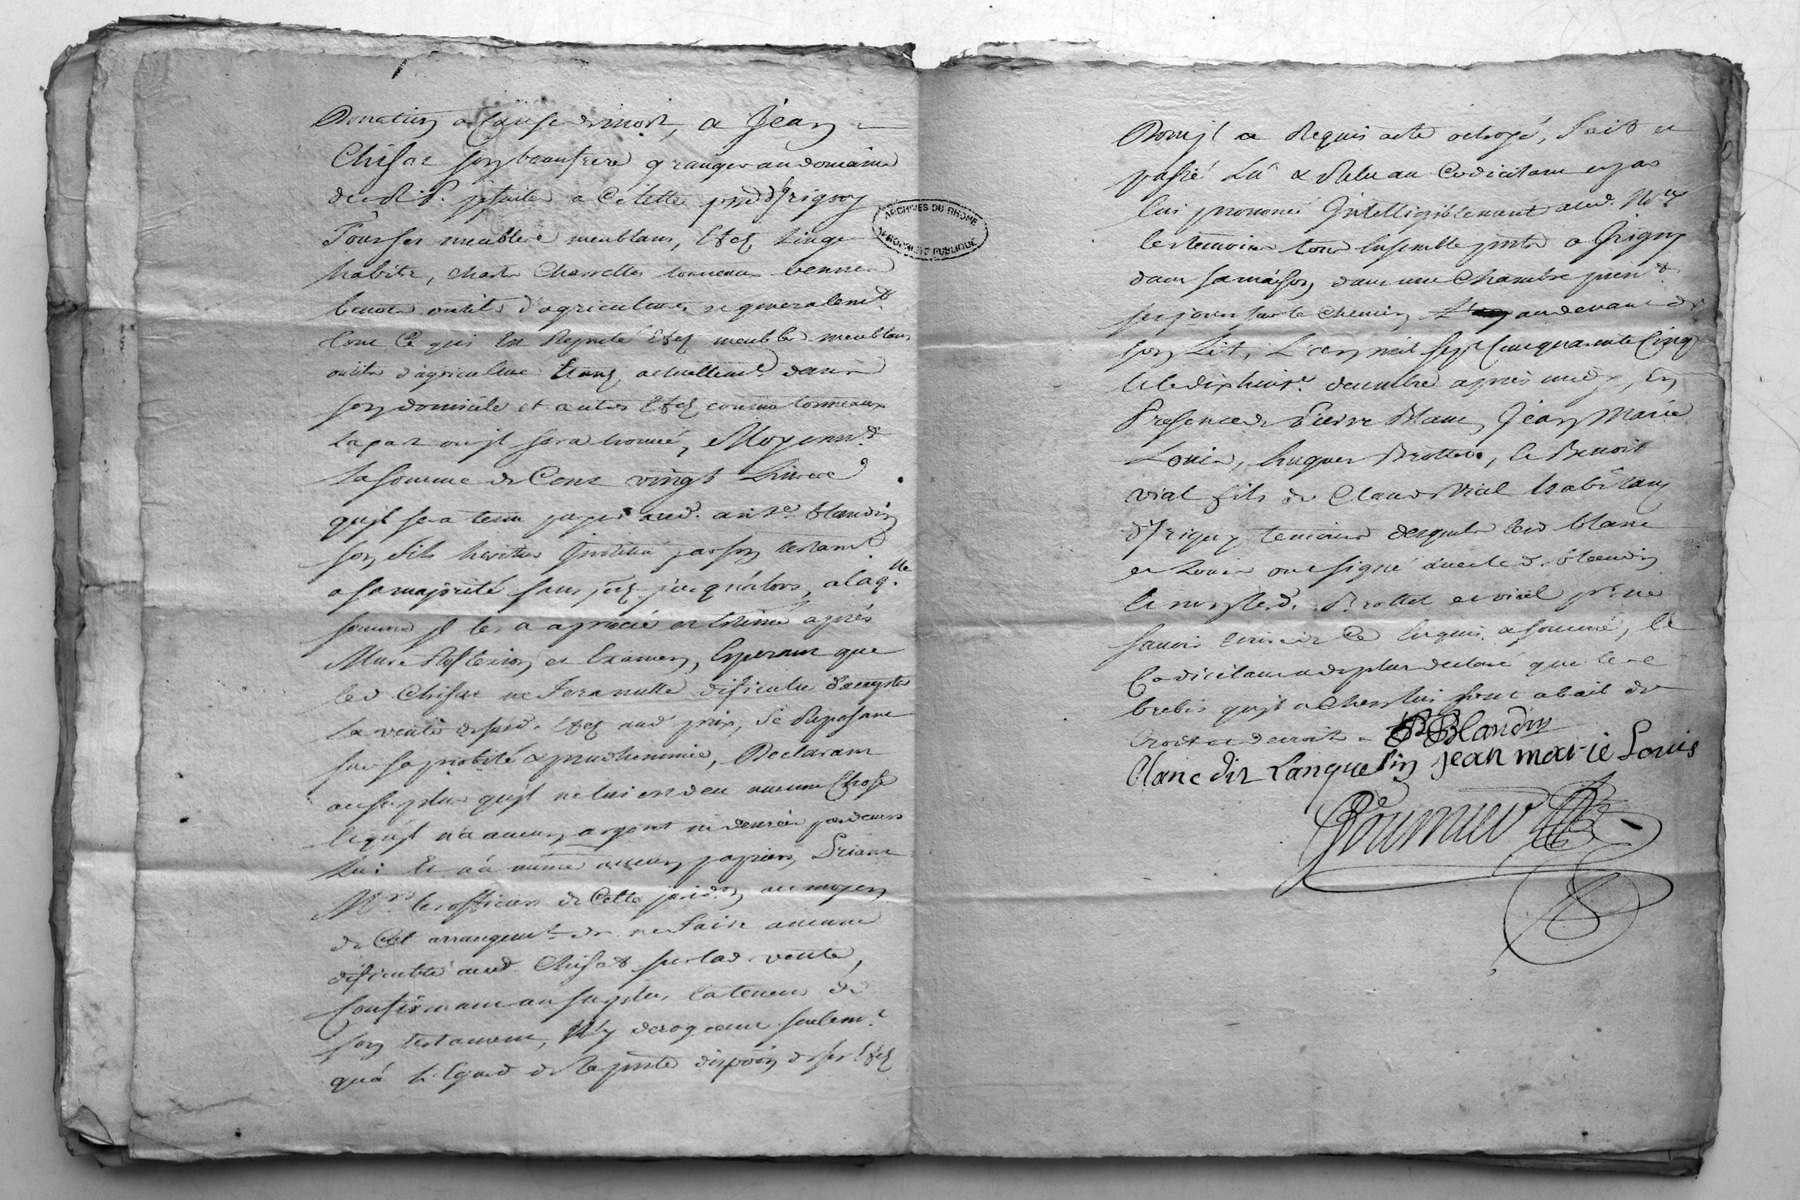 Donation a Cause de mort, a Jean
Chifat son beaufrere granger au domaine
des R. P. jesuites a Celette pnd d'Grigny
Tous ses meubles meublans, Effes Linge
habits, chars Charrettes tonneaux bennes
benots outils d'agriculture et generalemt
tout Ce qui Est Reputé Effes meubles meublans
outils d'agriculture Etans actuellemt dans
son domicile et autres Effes comme tonneaux
La part ou jl sera trouvé, Moyennt
la somme de Cent vingt Livres
qu'jl sera tenu payer aud. ant.e blandin
son fils heritier Institué par son testamt
a sa majorité sans jusqu'alors, a laq.lle
somme jl les a aprécié et Estimé après
Mure Reflexion et Examen, Esperant que
led Chifat ne fera nulle dificulté d'accepter
la vente desd. Effes aud prix, se Reposant
sur sa probité & prudhommie, Declarant
au surplus qu'jl ne lui est deu aucune Chose
& qu'jl n'a aucun argent ni denrées par devers
Lui & n'a même aucun papiers, Priant
Mrs les officiers de Cette jurid.on au moyen
de Cet arrangemt de ne faire aucune
dificulté aud. Chifat sur lad. vente,
Confirmant au surplus la teneur de
son testament, N'y derogeant seulemt
qu'à l'Egard de la pnte dispoon de ses Effes
Dont jl a Requis acte octroyé, fait et
passé Lû & Relu au Codicilant
lui prononcé Intelligiblement aud. Nre
les temoins tous Ensemble pnts a Grigny
dans sa maison, dans une Chambre prent
ses jours sur le Chemin, au devant de
son Lit, L'an mil sept Cinquante Cinq
& le dix huite decembre après midy, En
Presence de Pierre Blanc, Jean Marie
Louis, hugues Brottet, & Benoit
vial fils de Claude Vial habitans
d'Grigny temoins desquels led blanc
et Louis ont signé avec led. blandin
& non led. Brottet et vial pr ne
savoir Ecrire de Ce Enquis & sommé, le
Codicilant a de plus declaré que les
brebis qu'jl a Chez lui sont a bail de
Croit et decroit
Blandin
blanc dit Languefin jean marie Louis
Fournier
ARCHIVES DU RHONE
PROPRIÉTÉ PUBLIQUE